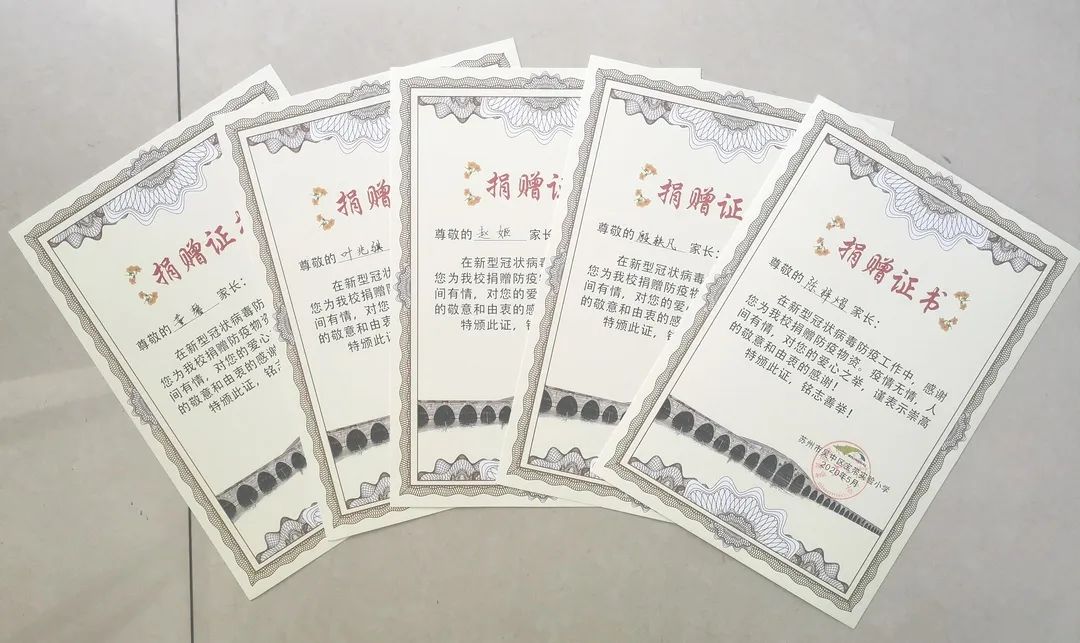 捐赠证
尊敬的 家长:
在新型冠状病毒防
您为我校捐赠防疫物
间有情,对您的爱心
的敬意和由衷的感谢
特颁此证,铭
捐赠
尊敬的叶兆祺
在新型冠
您为我校捐赠
间有情,对您
的敬意和由衷
特颁此证
捐赠证
尊敬的赵姬 家长
在新型冠状病毒
您为我校捐赠防疫物
间有情,对您的爱
的敬意和由衷的感
特颁此证,
捐赠证
尊敬的殷轶凡 家长:
在新型冠状病毒
您为我校捐赠防疫物
间有情,对您的爱心
的敬意和由衷的感
特颁此证,
捐赠证书
尊敬的 家长:
在新型冠状病毒防疫工作中,感谢
您为我校捐赠防疫物资。疫情无情,人
间有情,对您的爱心之举,谨表示崇高
的敬意和由衷的感谢!
特颁此证,铭志善举!
苏州市吴中区 实验小学
2020年5月